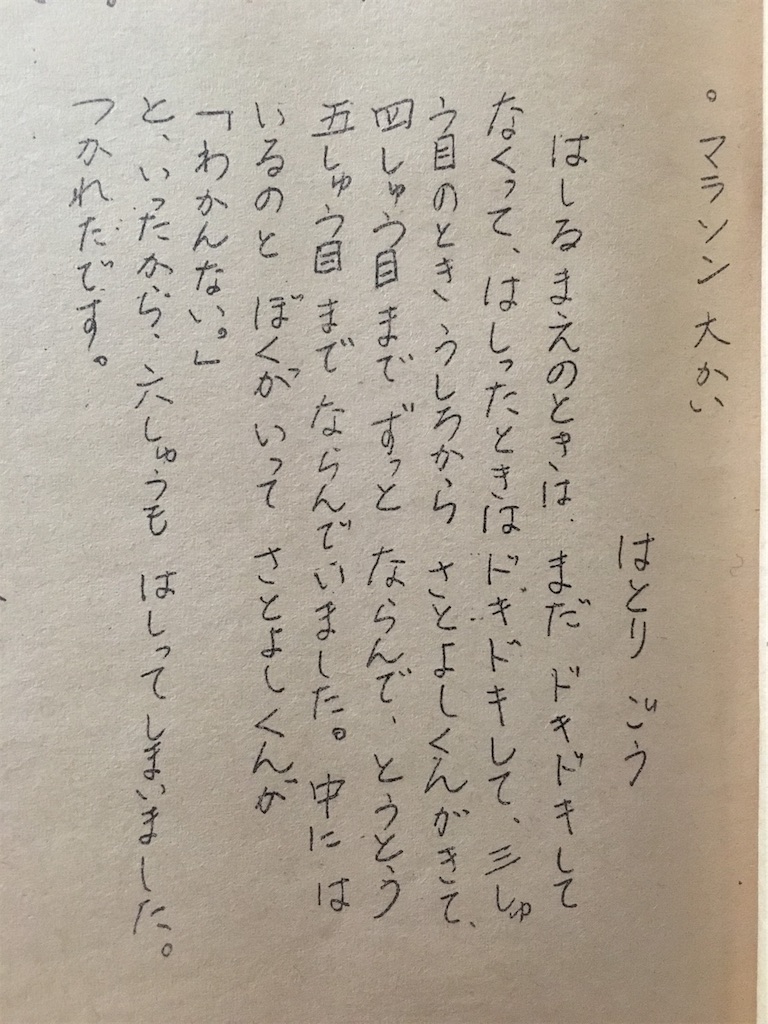 。マラソン大かい
はとり ごう
はしるまえのときは、まだ ドキドキして
なくって、はしったときはドキドキして、三しゅ
う目のとき、うしろから さとよしくんがきて、
四しゅう目まで ずっと ならんで、とうとう
五しゅう目まで ならんでいました。中には
いるのと ぼくが いって さとよしくんが
「わかんない。」
と、いったから、六しゅうも はしってしまいました。
つかれたです。